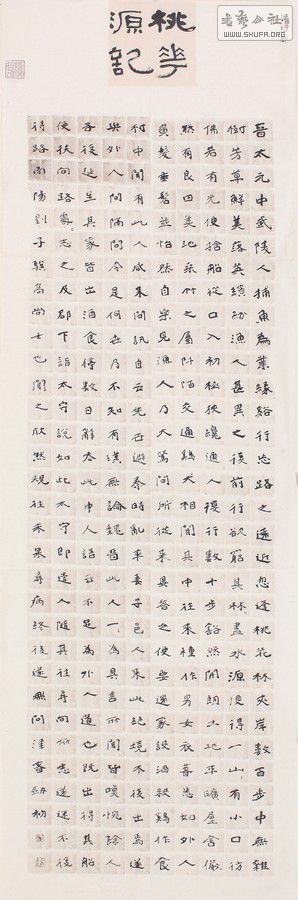 桃花
源記
晉太元中武陵人捕魚為業緣谿行忘路之遠近忽逢桃花林夾岸數百步中無雜
樹芳草鮮美落英繽紛漁人甚異之復前行欲窮其林盡水源便得一山有小口彷
佛若有光便捨船從口入初極狹纔通人復行數十步豁然開朗土地平曠屋舍儼
然有良田美池桑竹之屬阡陌交通雞犬相聞其中往來種作男女衣著悉如外人
黃髮垂髫並怡然自樂見漁人乃大驚問所從來具答之便要還家設酒殺雞作食
村中聞有此人咸來問訊自云先世避秦時亂率妻子邑人來此絕境不復出焉遂
與外人間隔問今是何世乃不知有漢無論魏晉此人一一為具言所聞皆歎惋餘人
各復延至其家皆出酒食停數日辭去此中人語云不足為外人道也既出得其船
便扶向路處處誌之及郡下詣太守說如此太守即遣人隨其往尋向所誌遂迷不復
得路南陽劉子驥高尚士也聞之欣然規往未果尋病終後遂無問津者
WWW.SHUFA.ORG